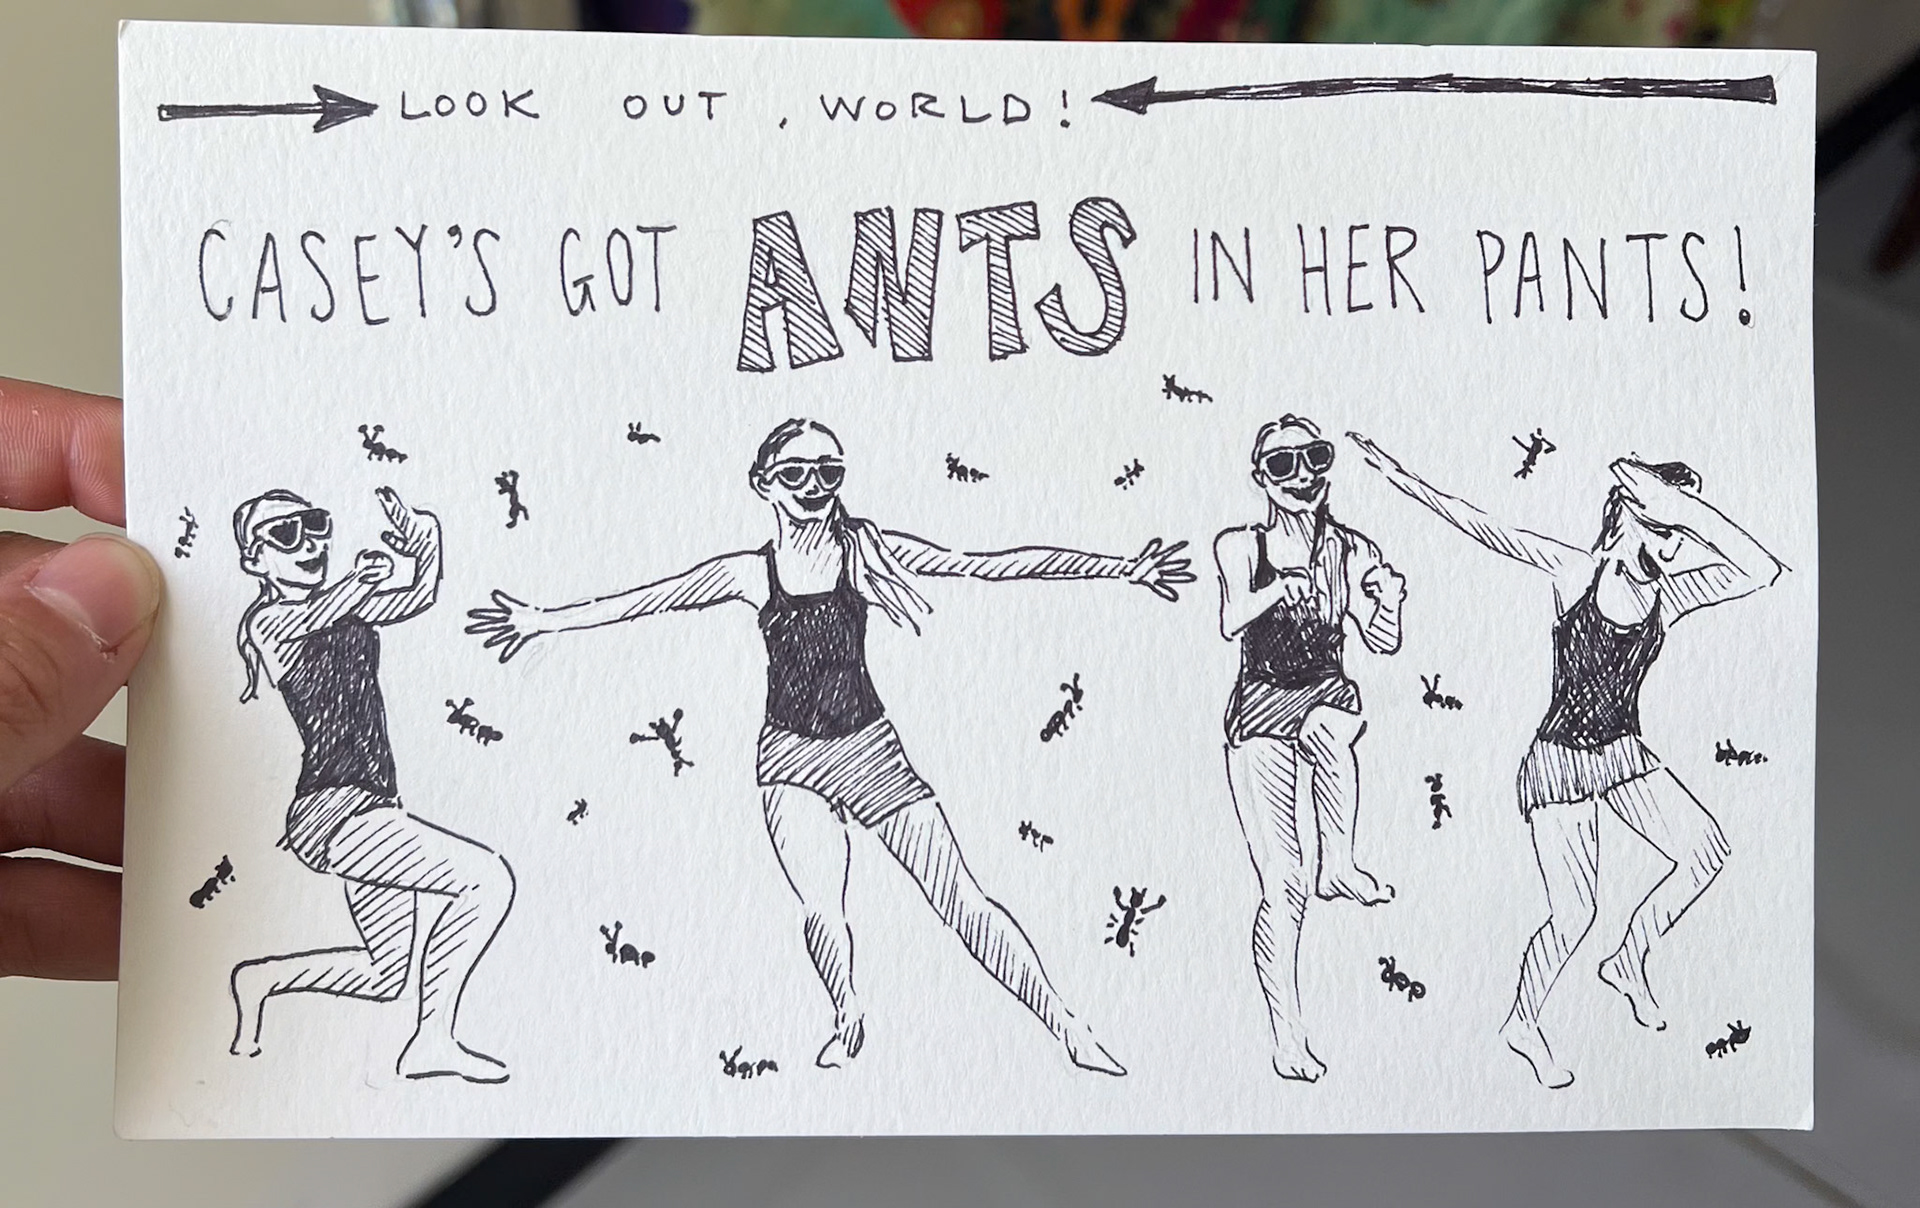 LOOK OUT, WORLD!
CASEY'S GOT ANTS IN HER PANTS!